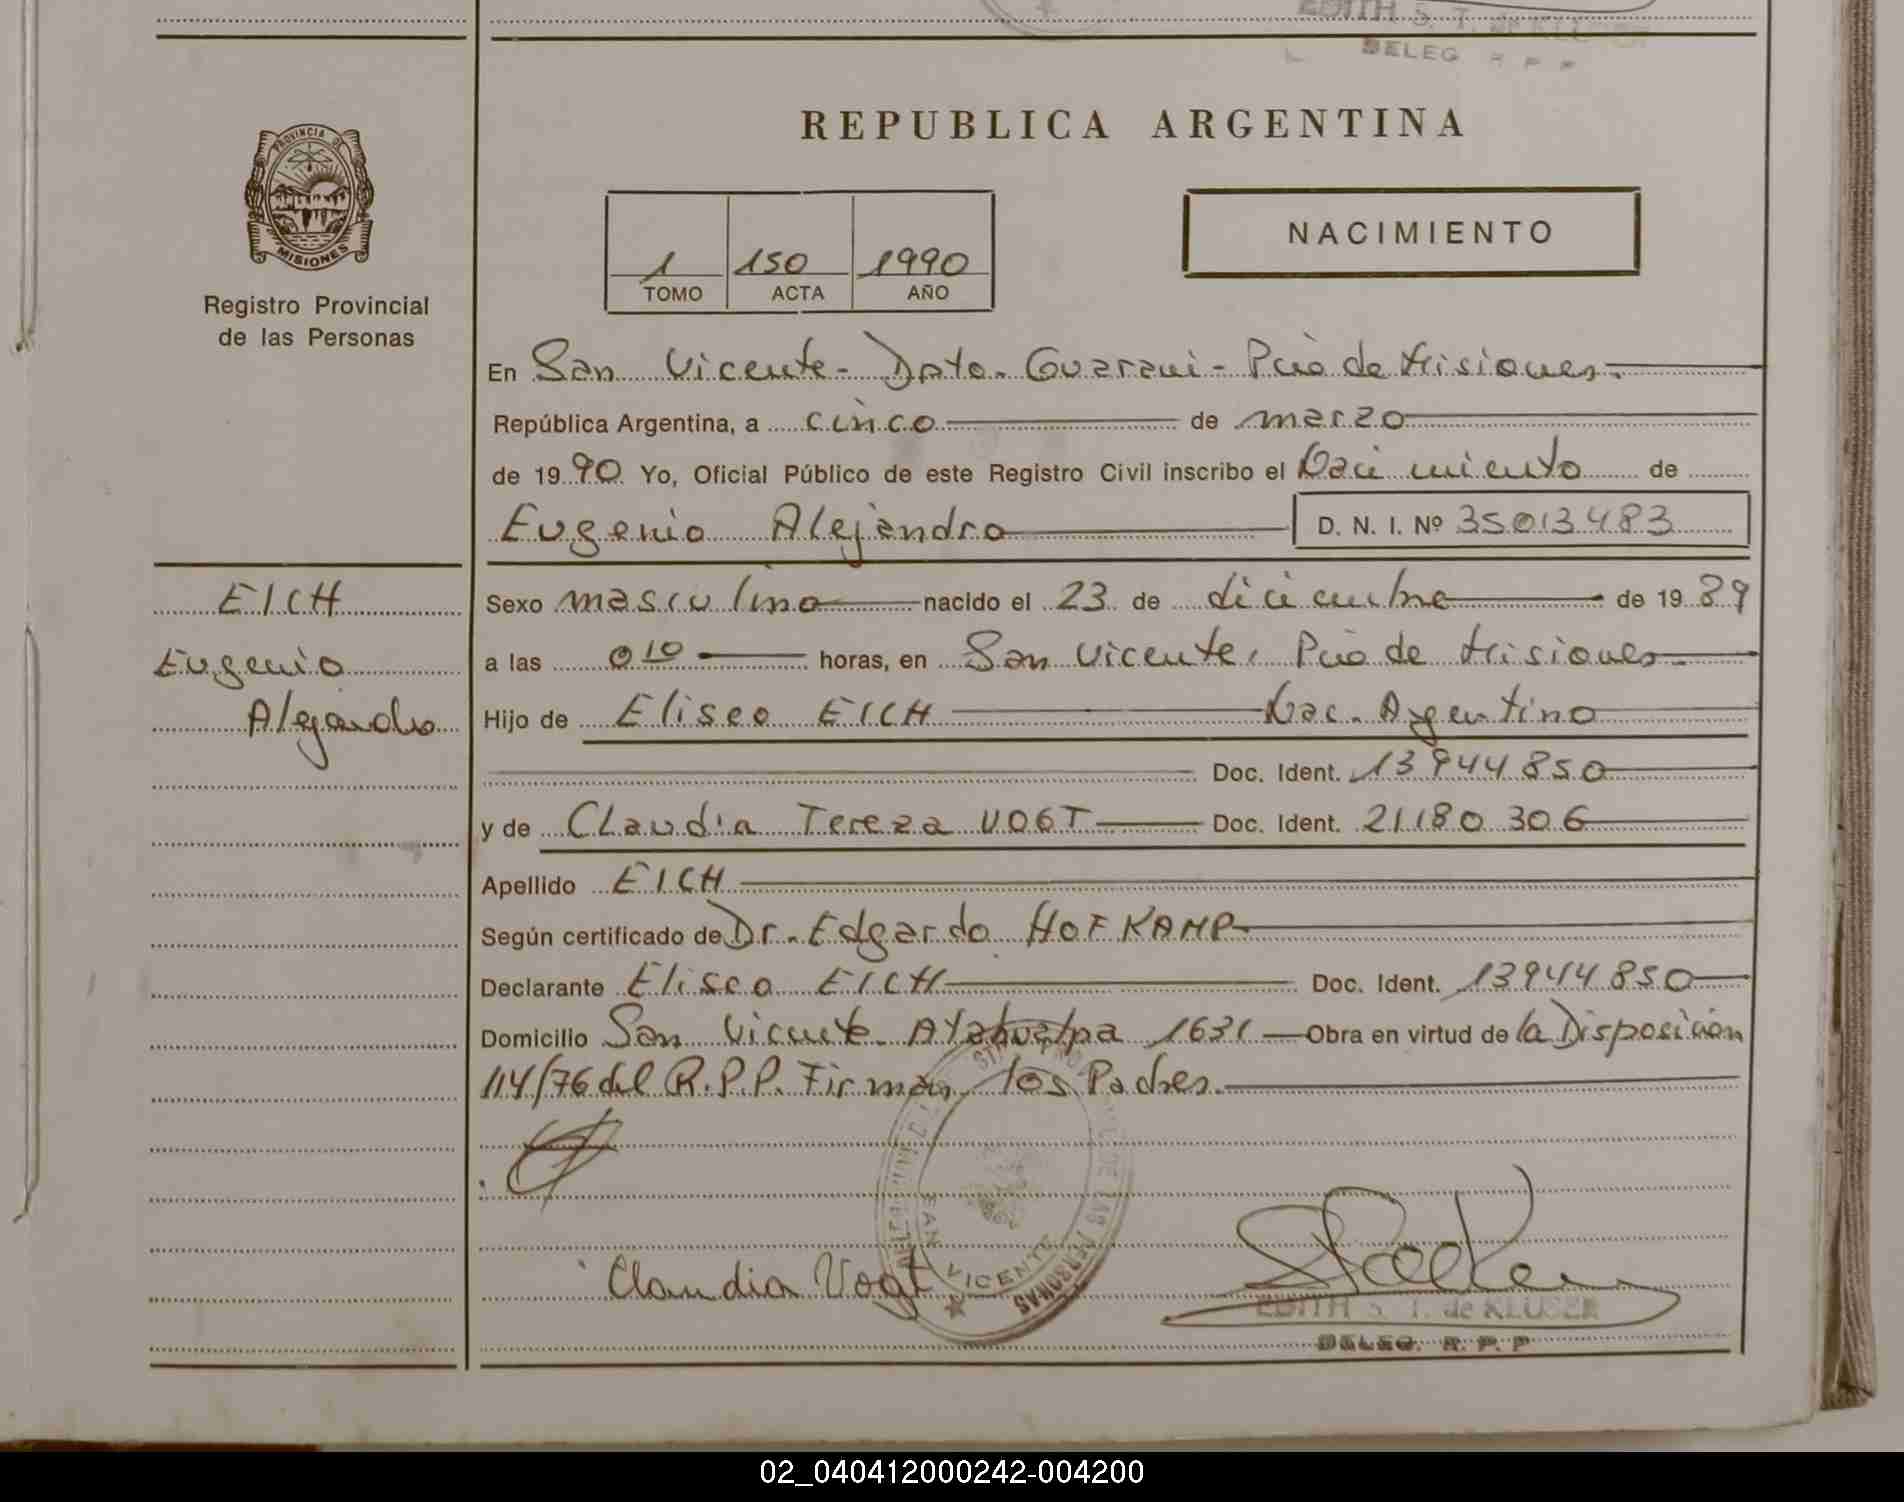 EDITH S. T. de KLUSER
DELEG R P P
REPUBLICA ARGENTINA
PROVINCIA DE
MISIONES
Registro Provincial
de las Personas
1 150 1990
TOMO ACTA AÑO
NACIMIENTO
En San Vicente - Dpto. Guarani - Pcia de Misiones.
República Argentina, a cinco de marzo
de 1990 Yo, Oficial Público de este Registro Civil inscribo el Nacimiento de
Eugenio Alejandro D. N. I. Nº 35013483
EICH
Eugenio
Alejandro
Sexo masculino nacido el 23 de diciembre de 1989
a las 0 10 horas, en San Vicente, Pcia de Misiones
Hijo de Eliseo EICH Nac. Argentino
Doc. Ident. 13944850
y de Claudia Tereza VOGT Doc. Ident. 21180306
Apellido EICH
Según certificado de Dr. Edgardo HOFKAMP
Declarante Eliseo EICH Doc. Ident. 13944850
Domicilio San Vicente Atahualpa 1631 Obra en virtud de la Disposición
114/76 del R.P.P. Firman los Padres.
DE LAS PERSONAS
SAN VICENTE
Claudia Vogt
EDITH S. T. de KLUSER
DELEG. R. P. P
02_040412000242-004200